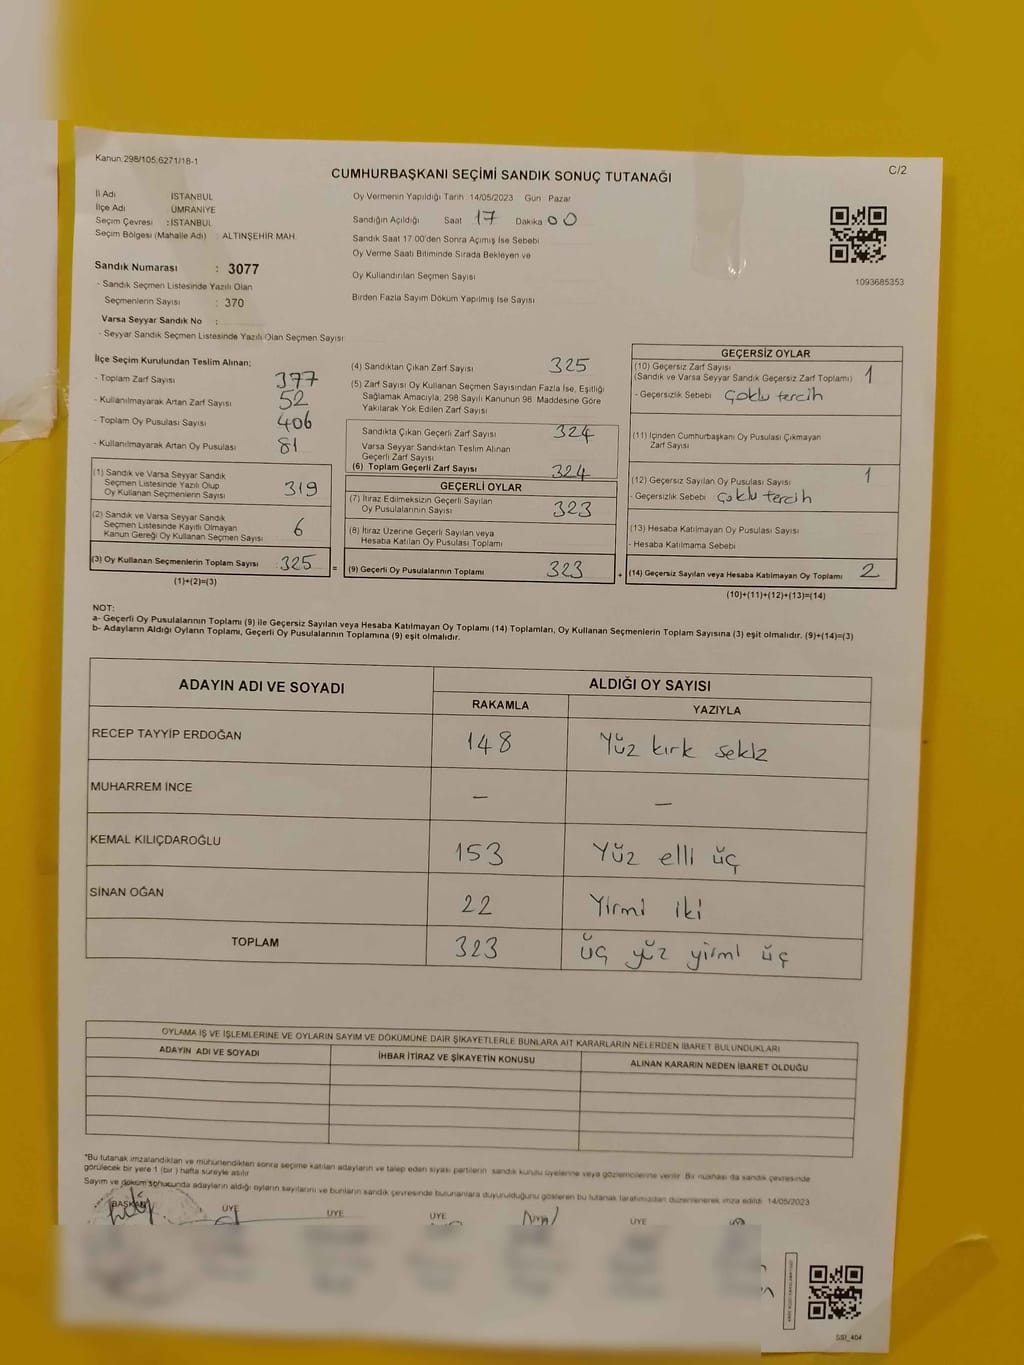 Kanun:298/105;6271/18-1
C/2
CUMHURBAŞKANI SEÇİMİ SANDIK SONUÇ TUTANAĞI
İl Adı İSTANBUL
İlçe Adı ÜMRANİYE
Seçim Çevresi : İSTANBUL
Seçim Bölgesi (Mahalle Adı) : ALTINŞEHİR MAH.
Sandık Numarası : 3077
- Sandık Seçmen Listesinde Yazılı Olan
Seçmenlerin Sayısı : 370
Varsa Seyyar Sandık No :
- Seyyar Sandık Seçmen Listesinde Yazılı Olan Seçmen Sayısı:
Oy Vermenin Yapıldığı Tarih 14/05/2023 Gün: Pazar
Sandığın Açıldığı Saat 17 Dakika 00
Sandık Saat 17:00'den Sonra Açılmış İse Sebebi
Oy Verme Saati Bitiminde Sırada Bekleyen ve
Oy Kullandırılan Seçmen Sayısı
Birden Fazla Sayım Döküm Yapılmış İse Sayısı
1093685353
İlçe Seçim Kurulundan Teslim Alınan:
- Toplam Zarf Sayısı 377
- Kullanılmayarak Artan Zarf Sayısı 52
- Toplam Oy Pusulası Sayısı 406
- Kullanılmayarak Artan Oy Pusulası 81
(1) Sandık ve Varsa Seyyar Sandık
Seçmen Listesinde Yazılı Olup
Oy Kullanan Seçmenlerin Sayısı 319
(2) Sandık ve Varsa Seyyar Sandık
Seçmen Listesinde Kayıtlı Olmayan
Kanun Gereği Oy Kullanan Seçmen Sayısı 6
(3) Oy Kullanan Seçmenlerin Toplam Sayısı 325 =
(1)+(2)=(3)
(4) Sandıktan Çıkan Zarf Sayısı 325
(5) Zarf Sayısı Oy Kullanan Seçmen Sayısından Fazla İse, Eşitliği
Sağlamak Amacıyla; 298 Sayılı Kanunun 98. Maddesine Göre
Yakılarak Yok Edilen Zarf Sayısı
Sandıkta Çıkan Geçerli Zarf Sayısı 324
Varsa Seyyar Sandıktan Teslim Alınan
Geçerli Zarf Sayısı
(6) Toplam Geçerli Zarf Sayısı 324
GEÇERLİ OYLAR
(7) İtiraz Edilmeksizin Geçerli Sayılan
Oy Pusulasının Sayısı 323
(8) İtiraz Üzerine Geçerli Sayılan veya
Hesaba Katılan Oy Pusulası Toplamı
(9) Geçerli Oy Pusulalarının Toplamı 323 +
GEÇERSİZ OYLAR
(10) Geçersiz Zarf Sayısı
(Sandık ve Varsa Seyyar Sandık Geçersiz Zarf Toplamı) 1
- Geçersizlik Sebebi Çoklu tercih
(11) İçinden Cumhurbaşkanı Oy Pusulası Çıkmayan
Zarf Sayısı
(12) Geçersiz Sayılan Oy Pusulası Sayısı 1
- Geçersizlik Sebebi Çoklu tercih
(13) Hesaba Katılmayan Oy Pusulası Sayısı
- Hesaba Katılmama Sebebi
(14) Geçersiz Sayılan veya Hesaba Katılmayan Oy Toplamı 2
(10)+(11)+(12)+(13)=(14)
NOT:
a- Geçerli Oy Pusulalarının Toplamı (9) ile Geçersiz Sayılan veya Hesaba Katılmayan Oy Toplamı (14) Toplamları, Oy Kullanan Seçmenlerin Toplam Sayısına (3) eşit olmalıdır. (9)+(14)=(3)
b- Adayların Aldığı Oyların Toplamı, Geçerli Oy Pusulalarının Toplamına (9) eşit olmalıdır.
ADAYIN ADI VE SOYADI ALDIĞI OY SAYISI
RAKAMLA YAZIYLA
RECEP TAYYİP ERDOĞAN 148 Yüz kırk sekiz
MUHARREM İNCE - -
KEMAL KILIÇDAROĞLU 153 Yüz elli üç
SİNAN OĞAN 22 Yirmi iki
TOPLAM 323 üç yüz yirmi üç
OYLAMA İŞ VE İŞLEMLERİNE VE OYLARIN SAYIM VE DÖKÜMÜNE DAİR ŞİKAYETLERLE BUNLARA AİT KARARLARIN NELERDEN İBARET BULUNDUKLARI
ADAYIN ADI VE SOYADI İHBAR İTİRAZ VE ŞİKAYETİN KONUSU ALINAN KARARIN NEDEN İBARET OLDUĞU
*Bu tutanak imzalandıktan ve mühürlendikten sonra seçime katılan adayların ve talep eden siyasi partilerin sandık kurulu üyelerine veya gözlemcilerine verilir. Bir nüshası da sandık çevresinde
görülecek bir yere 1 (bir) hafta süreyle asılır.
Sayım ve döküm sonucunda adayların aldığı oyların sayılarını ve bunların sandık çevresinde bulunanlara duyurulduğunu gösteren bu tutanak tarafımızdan düzenlenerek imza edildi. 14/05/2023
BAŞKAN ÜYE ÜYE ÜYE ÜYE
SSI_404